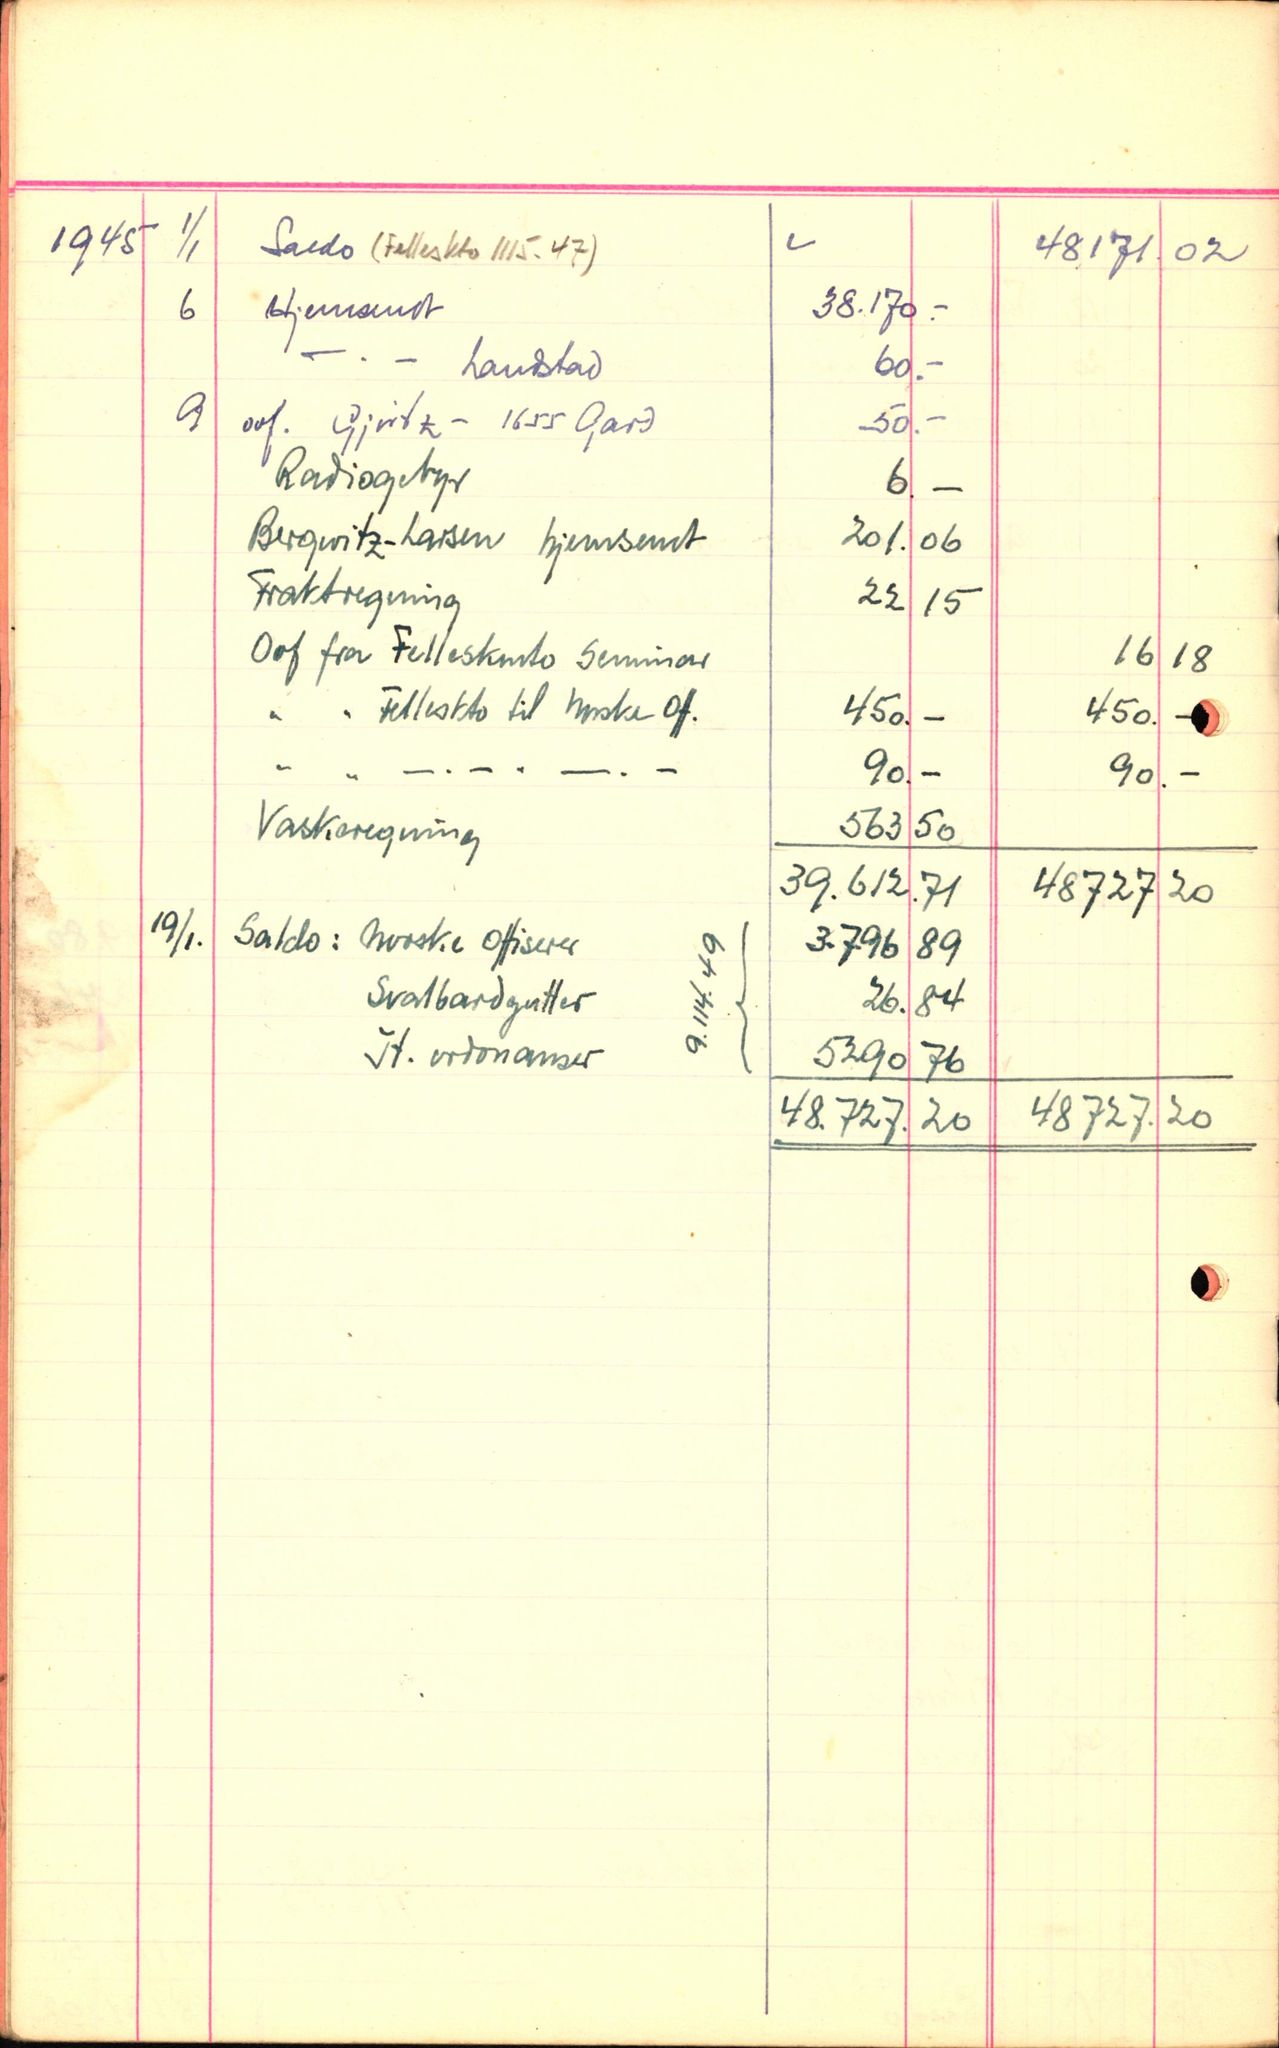 1945 1/1 Saldo (Felleskto 1115.47) 48.171.02
6 Hjemsendt 38.170.-
— . — Landstad 60.-
9 ovf. Gjvitz - 1655 Gard 50.-
Radiogebyr 6.—
Bergwitz-Larsen hjemsendt 201.06
Fraktregning 22 15
Ovf fra Felleskonto Seminar 16 18
" " Felleskto til Norske Off. 450.— 450.—
" " —.—.—.— 90.— 90.—
Vaskeregning 563 50
39.612.71 48727 20
19/1. Saldo: Norske Offiserer 3.796 89
Svalbardgutter 26.84
It. ordonanser 5290 76
9.114.49
48.727.20 48727.20